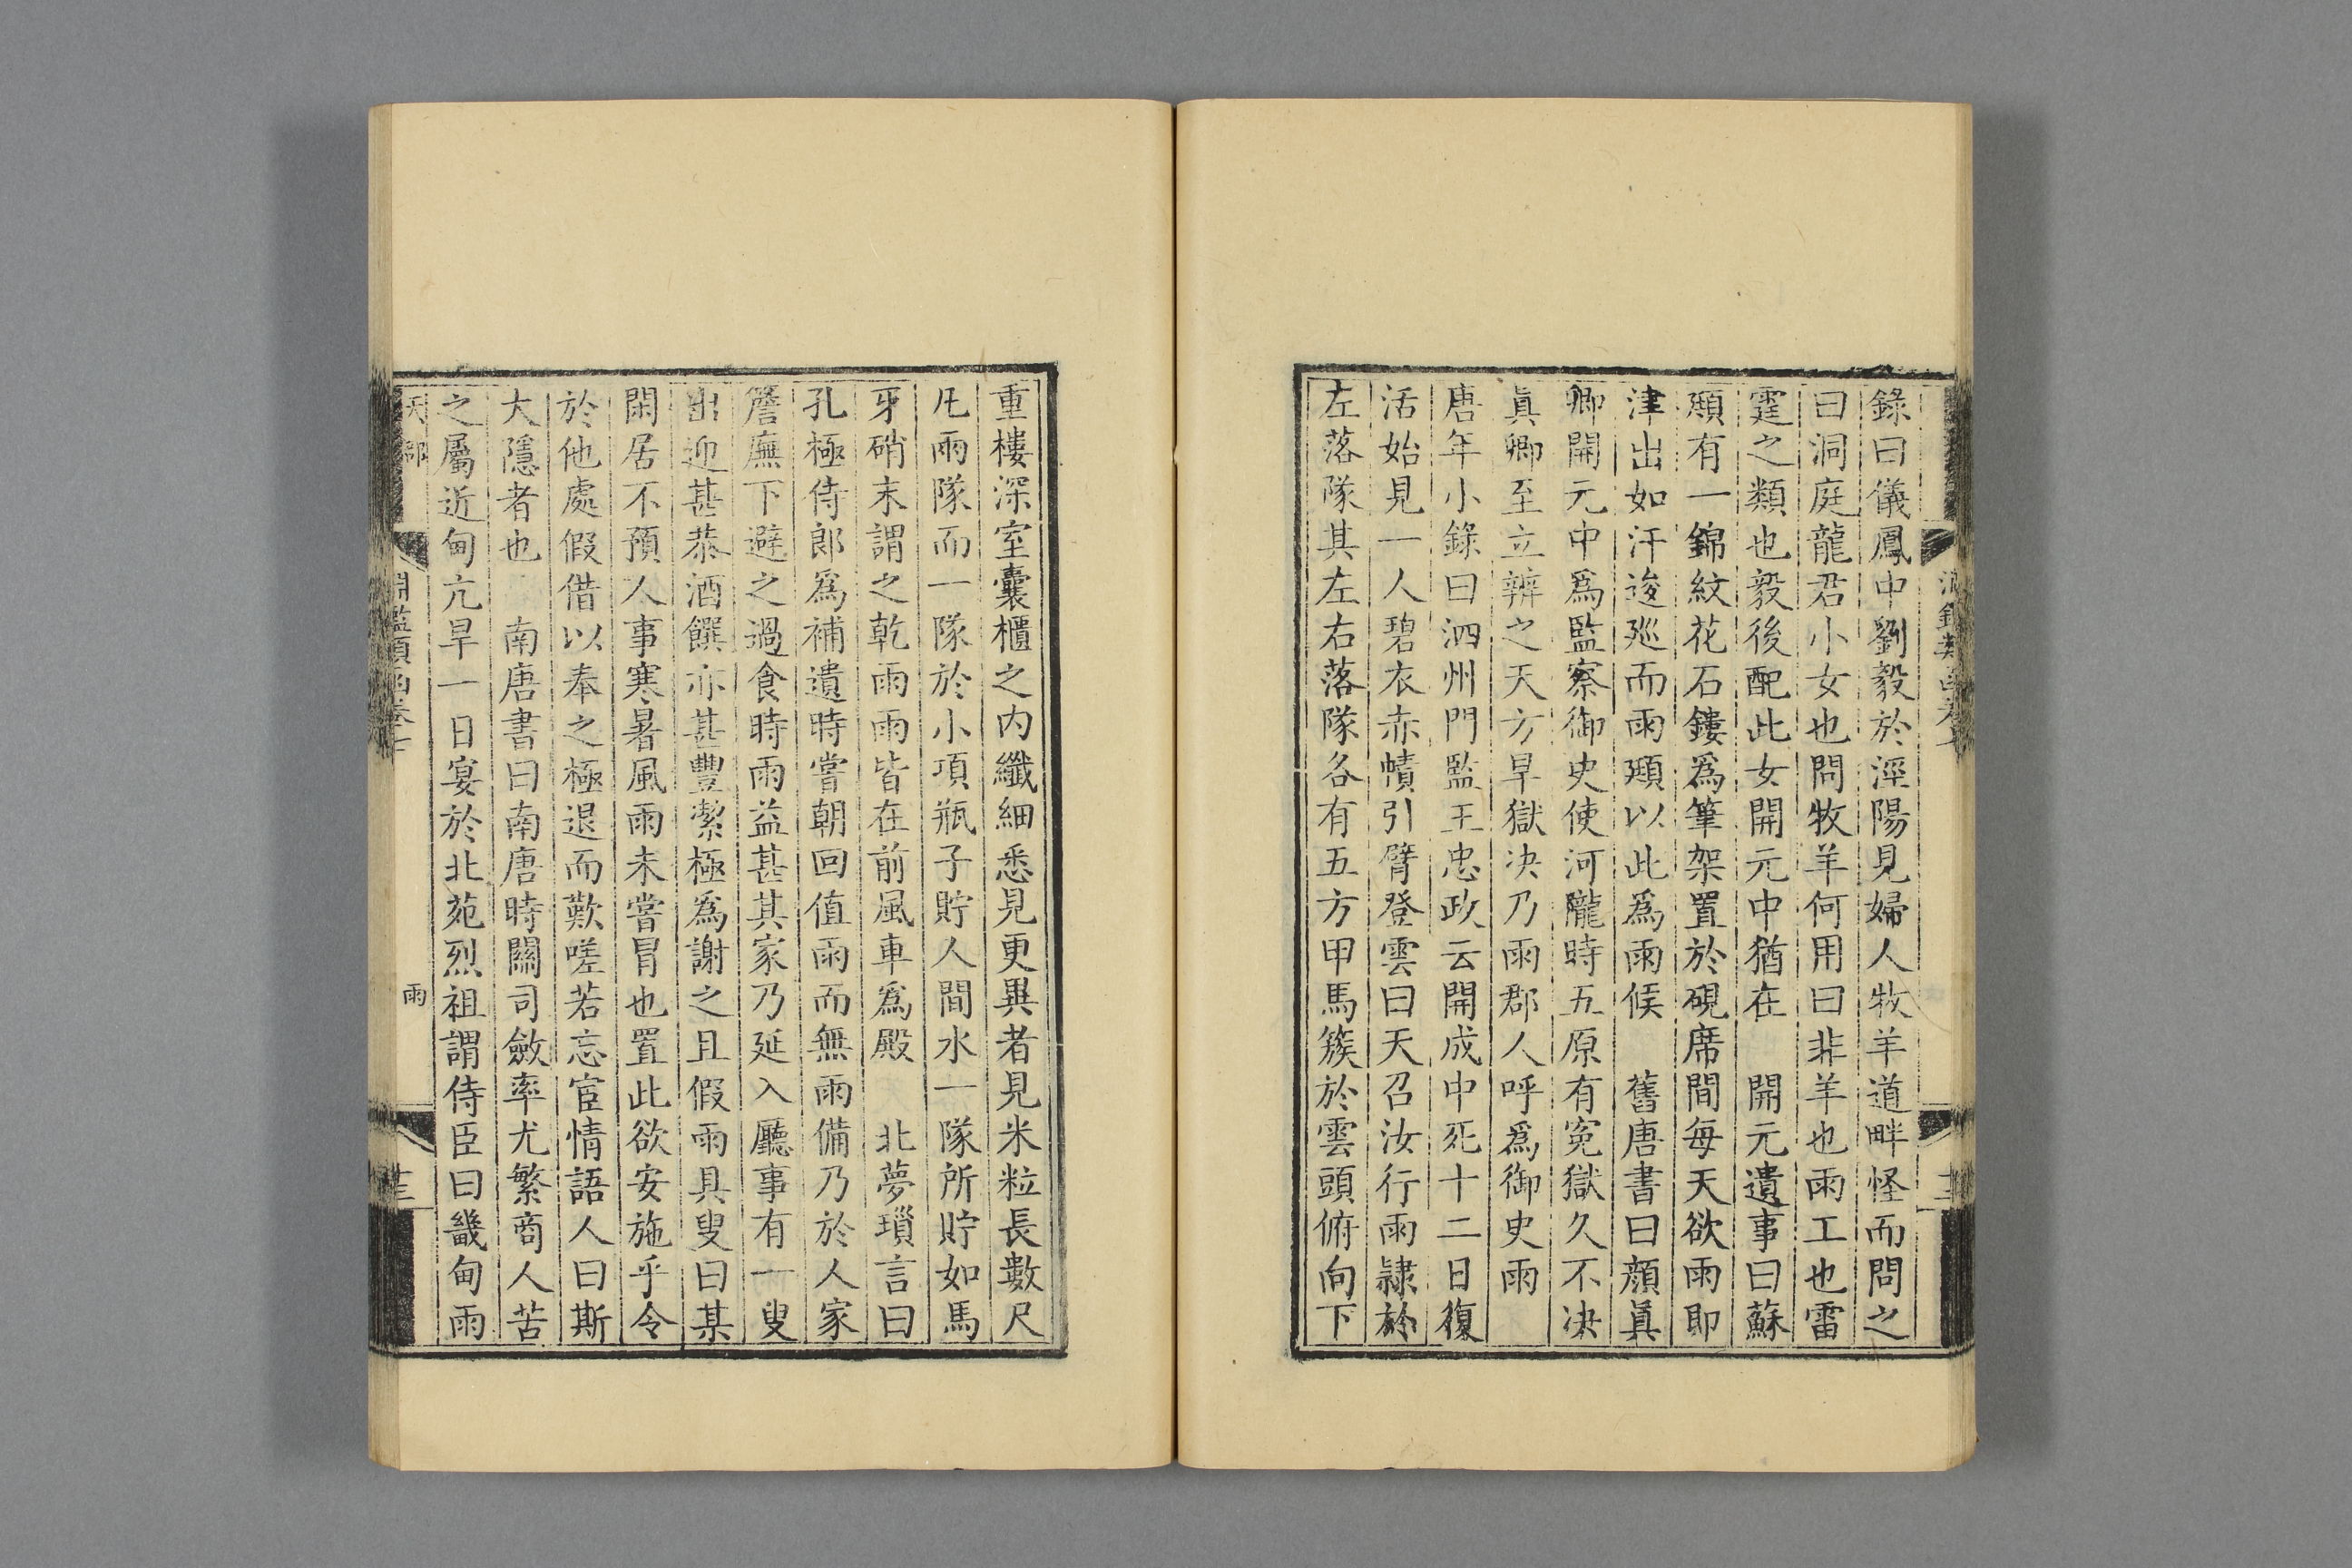 錄曰儀鳳中劉毅於涇陽見婦人牧羊道畔怪而問之
曰洞庭龍君小女也問牧羊何用曰非羊也雨工也雷
霆之類也毅後配此女開元中猶在　開元遺事曰蘇
頲有一錦紋花石鏤爲筆架置於硯席間每天欲雨即
津出如汗逡廵而雨頲以此爲雨候　舊唐書曰顏眞
卿開元中爲監察御史使河隴時五原有寃獄久不决
眞卿至立辨之天方旱獄决乃雨郡人呼爲御史雨
唐年小錄曰泗州門監王忠政云開成中死十二日復
活始見一人碧衣赤幘引臂登雲曰天召汝行雨隷於
左落隊其左右落隊各有五方甲馬簇於雲頭俯向下
重樓深室囊櫃之内纖細悉見更異者見米粒長數尺
凡雨隊而一隊於小項瓶子貯人間水一隊所貯如馬
牙硝末謂之乾雨雨皆在前風車爲殿　北夢瑣言曰
孔極侍郎爲補遺時嘗朝回值雨而無雨備乃於人家
簷廡下避之過食時雨益甚其家乃延入廳事有一叟
出迎甚恭酒饌亦甚豐潔極爲謝之且假雨具叟曰某
閑居不預人事寒暑風雨未嘗冒也置此欲安施乎令
於他處假借以奉之極退而歎嗟若忘宦情語人曰斯
大隱者也　南唐書曰南唐時關司斂率尤繁商人苦
之屬近甸亢旱一日宴於北苑烈祖謂侍臣曰畿甸雨
天部
淵鑑類函卷七
雨